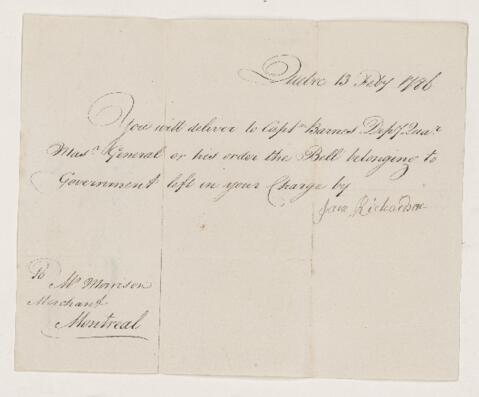 Quebec 13 Feby 1786
You will deliver to Captn Barnes Depy. Quar
Masr. General or his order the Bell belonging to
Government left in your Charge by
Richardson
To
Mr Morrison
Merchant
Montreal